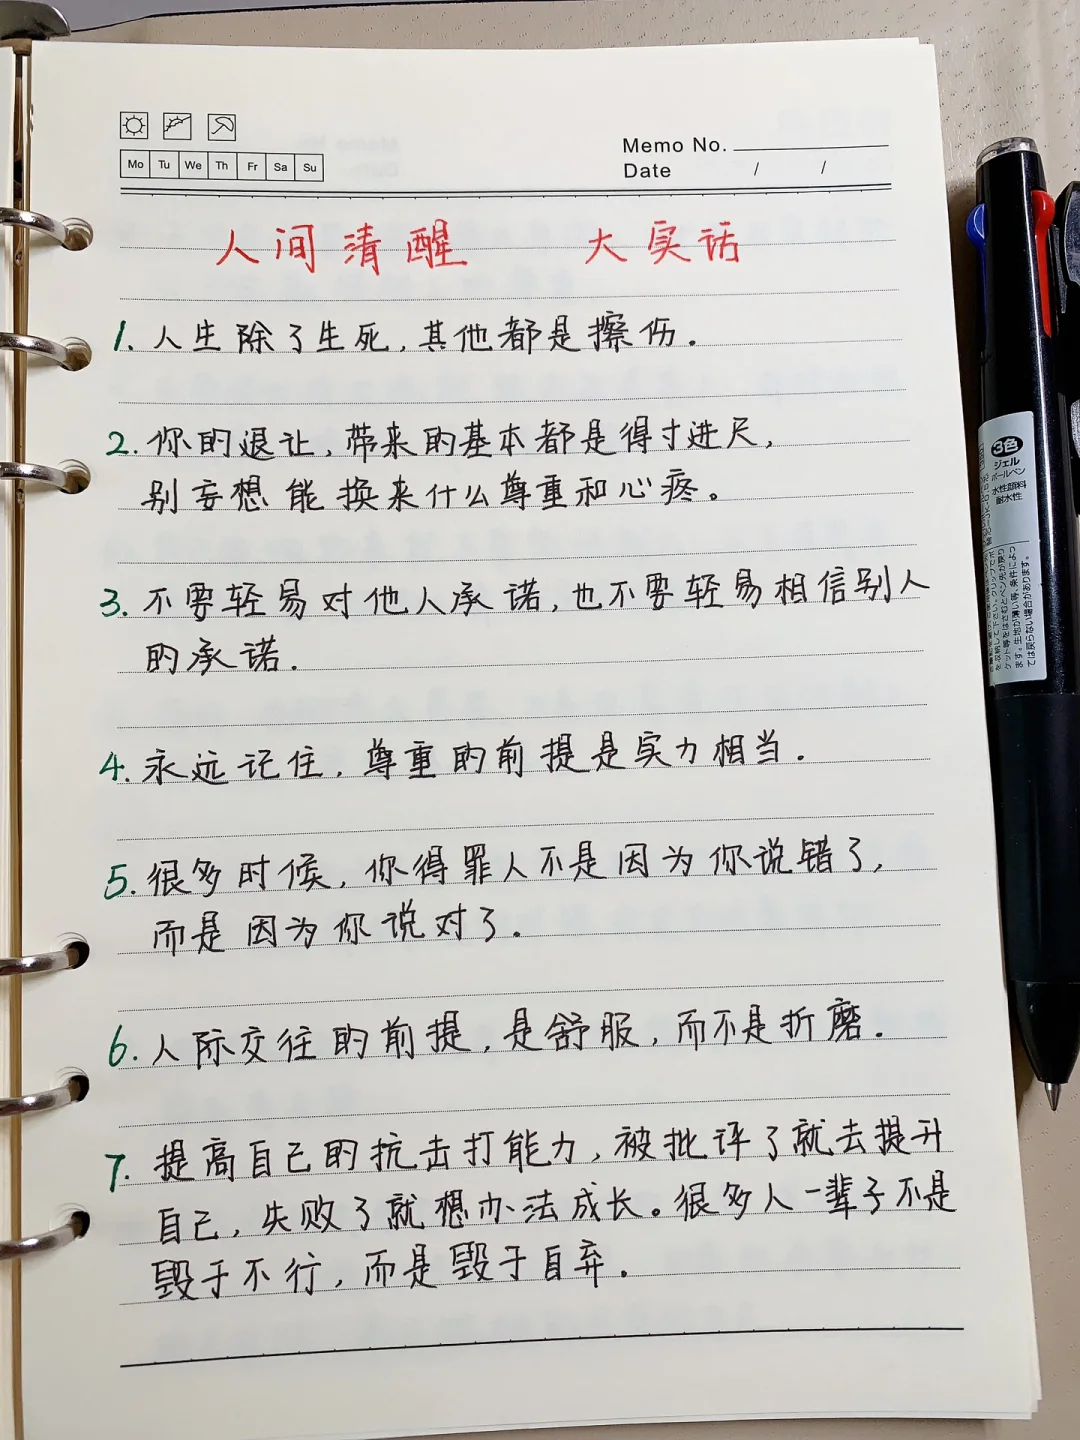 Mo Tu We Th Fr Sa Su
Memo No.
Date / /
人间清醒 大实话
1. 人生除了生死,其他都是擦伤.
2. 你的退让,带来的基本都是得寸进尺,
别妄想能换来什么尊重和心疼。
3. 不要轻易对他人承诺,也不要轻易相信别人
的承诺.
4. 永远记住,尊重的前提是实力相当.
5. 很多时候,你得罪人不是因为你说错了,
而是因为你说对了.
6. 人际交往的前提,是舒服,而不是折磨.
7. 提高自己的抗击打能力,被批评了就去提升
自己,失败了就想办法成长。很多人一辈子不是
毁于不行,而是毁于自弃.
3色
ジェル
ボールペン
水性顔料
耐水性